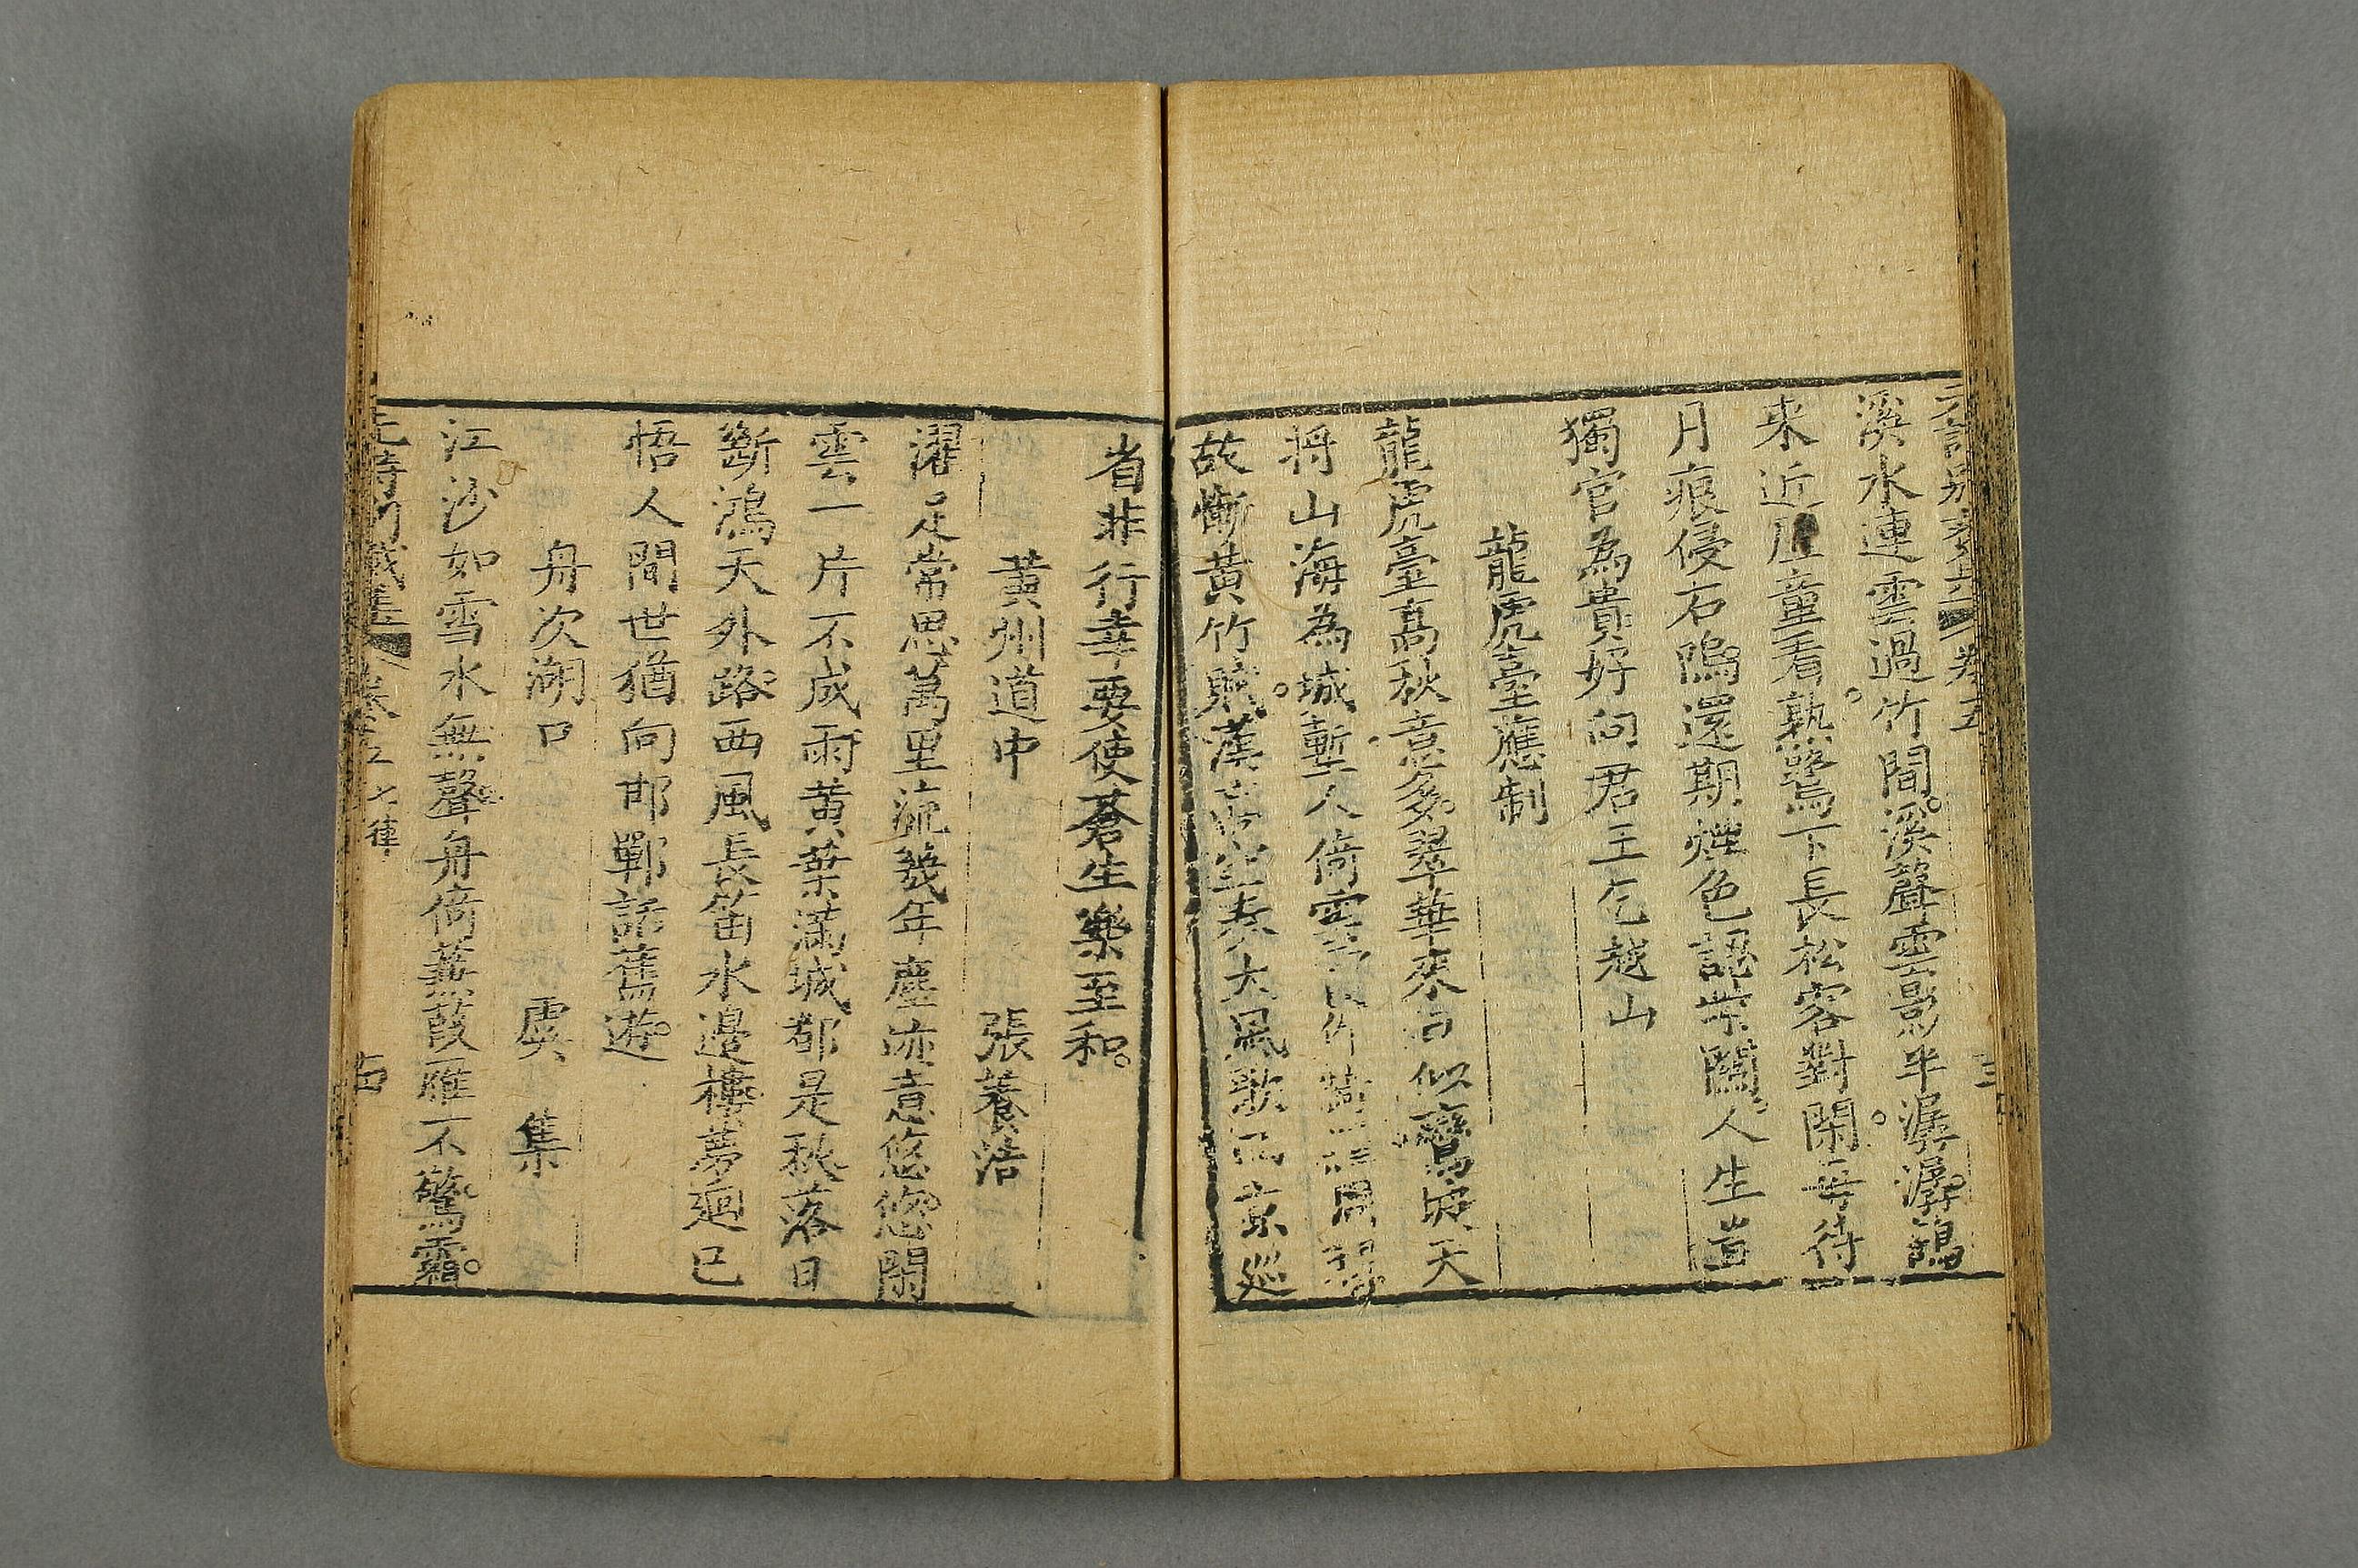 溪水連雲過竹間溪聲雲影半潺潺鷗
来近岸童看熟鶯下長松客對閑每待
月痕侵石㠀還期煙色認柴關人生豈
獨官為貴好向君王乞越山
龍虎臺應制
龍虎臺高秋意多翠華來日似鸞坡天
将山海為城塹人倚雲
故慚黃竹賦漢 空奏大風歌兩京巡
省非行幸要使蒼生樂至和
黃州道中 張養浩
濯足常思萬里流幾年塵迹意悠悠閑
雲一片不成雨黃葉滿城都是秋落日
斷鴻天外路西風長笛水邊樓夢廻已
悟人間世猶向邯鄲話舊遊
舟次湖口 虞集
江沙如雪水無聲舟倚蒹葭雁不驚霜
卷五 七律